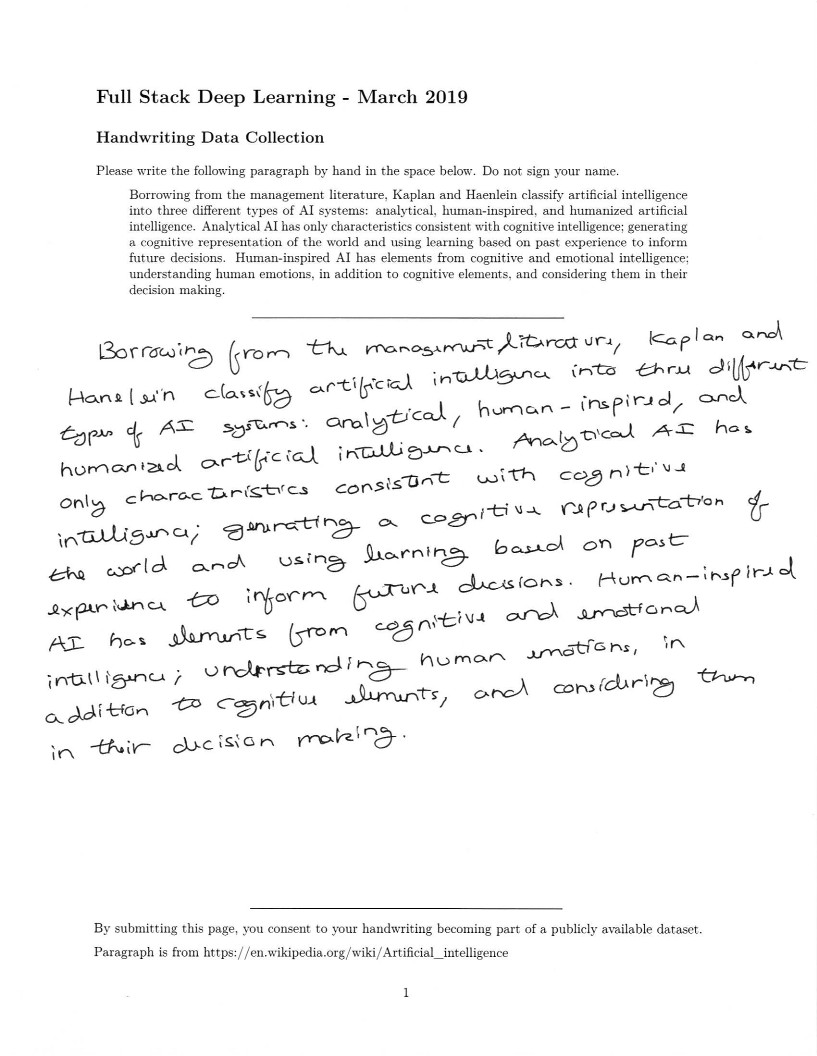 Full Stack Deep Learning - March 2019
Handwriting Data Collection
Please write the following paragraph by hand in the space below. Do not sign your name.
Borrowing from the management literature, Kaplan and Haenlein classify artificial intelligence
into three different types of AI systems: analytical, human-inspired, and humanized artificial
intelligence. Analytical AI has only characteristics consistent with cognitive intelligence; generating
a cognitive representation of the world and using learning based on past experience to inform
future decisions. Human-inspired AI has elements from cognitive and emotional intelligence;
understanding human emotions, in addition to cognitive elements, and considering them in their
decision making.
Borrowing from the management literature, Kaplan and
Hanelein classify artificial intelligence into three different
types of AI systems: analytical, human-inspired, and
humanized artificial intelligence. Analytical AI has
only characteristics consistent with cognitive
intelligence; generating a cognitive representation of
the world and using learning based on past
experience to inform future decisions. Human-inspired
AI has elements from cognitive and emotional
intelligence; understanding human emotions, in
addition to cognitive elements, and considering them
in their decision making.
By submitting this page, you consent to your handwriting becoming part of a publicly available dataset.
Paragraph is from https://en.wikipedia.org/wiki/Artificial_intelligence
1